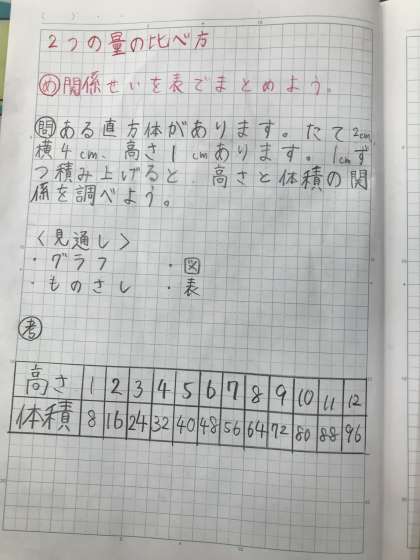 ( )
2つの量の比べ方
め 関係せいを表でまとめよう。
問 ある直方体があります。たて2cm
横4cm、高さ1cmあります。1cmず
つ積み上げると、高さと体積の関
係を調べよう。
〈見通し〉
・グラフ ・図
・ものさし ・表
考
高さ 1 2 3 4 5 6 7 8 9 10 11 12
体積 8 16 24 32 40 48 56 64 72 80 88 96